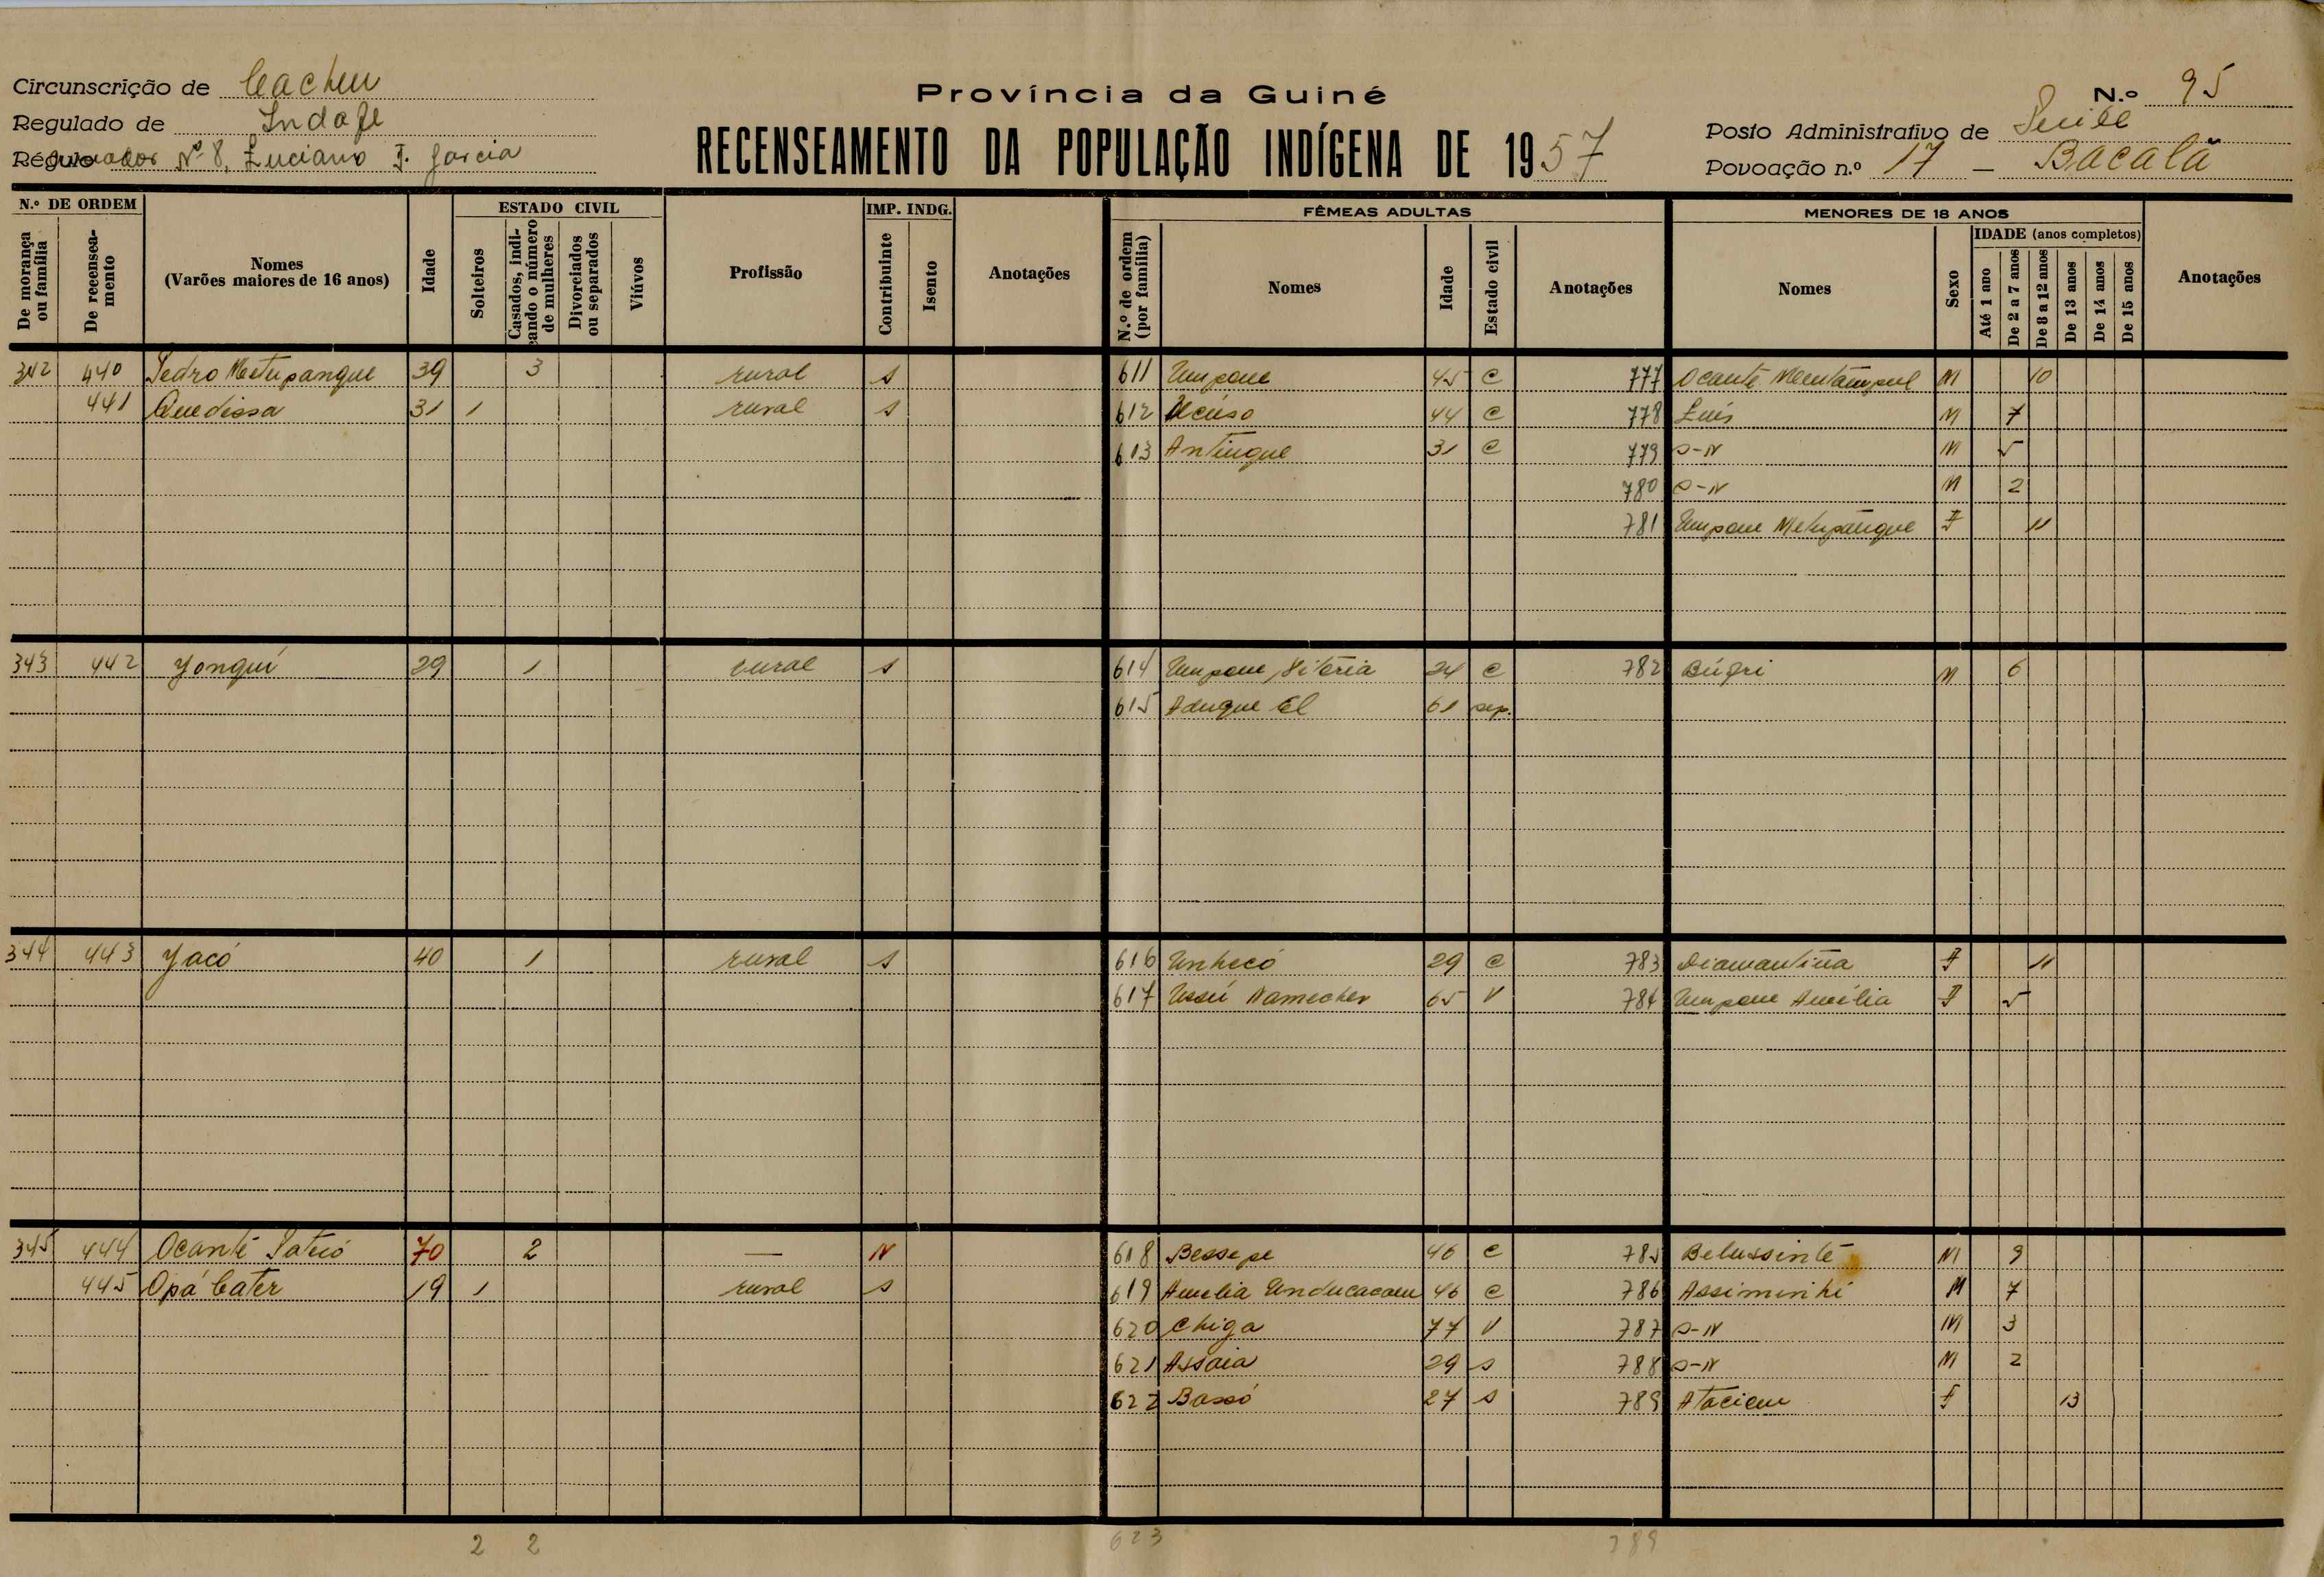 Circunscrição de Cacheu
Regulado de Indafe
Régulo Nº 8, Luciano J. Garcia
Província da Guiné
RECENSEAMENTO DA POPULAÇÃO INDÍGENA DE 1957
N.º 95
Posto Administrativo de
Povoação n.º 17 - Bacalã
N.º DE ORDEM
De morança ou família
De recenseamento
Nomes
(Varões maiores de 16 anos)
Idade
ESTADO CIVIL
Solteiros
Casados, indicando o número de mulheres
Divorciados ou separados
Viúvos
Profissão
IMP. INDG.
Contribuinte
Isento
Anotações
FÊMEAS ADULTAS
N.º de ordem (por família)
Nomes
Idade
Estado civil
Anotações
MENORES DE 18 ANOS
Nomes
Sexo
IDADE (anos completos)
Até 1 ano
De 2 a 7 anos
De 8 a 12 anos
De 13 anos
De 14 anos
De 15 anos
Anotações
342 440 Pedro Metupangue 39 3 rural s 611 Umpane 45 C 777 Ocante M 10
441 Quedissa 31 1 rural s 612 44 C 778 Luís M 7
613 Antingue 31 C 779 S-N M 5
780 S-N M 2
781 Umpane Metupangue F 11
343 442 Yonguí 29 1 rural s 614 Umpane Vitória 24 C 782 Búgri M 6
615 61 sep.
344 443 Yacó 40 1 rural s 616 Unhecó 29 C 783 Diamantina F 11
617 Ussú Namecher 65 V 784 Umpane Amélia F 5
345 444 Ocante 70 2 — N 618 Bessepe 46 C 785 Belussinté M 9
445 Opá Cater 19 1 rural s 619 Amelia 46 C 786 Assiminhi M 7
620 Chiga 77 V 787 S-N M 3
621 Assaia 29 s 788 S-N M 2
622 Bassó 27 s 789 F 13
2 2 623 789